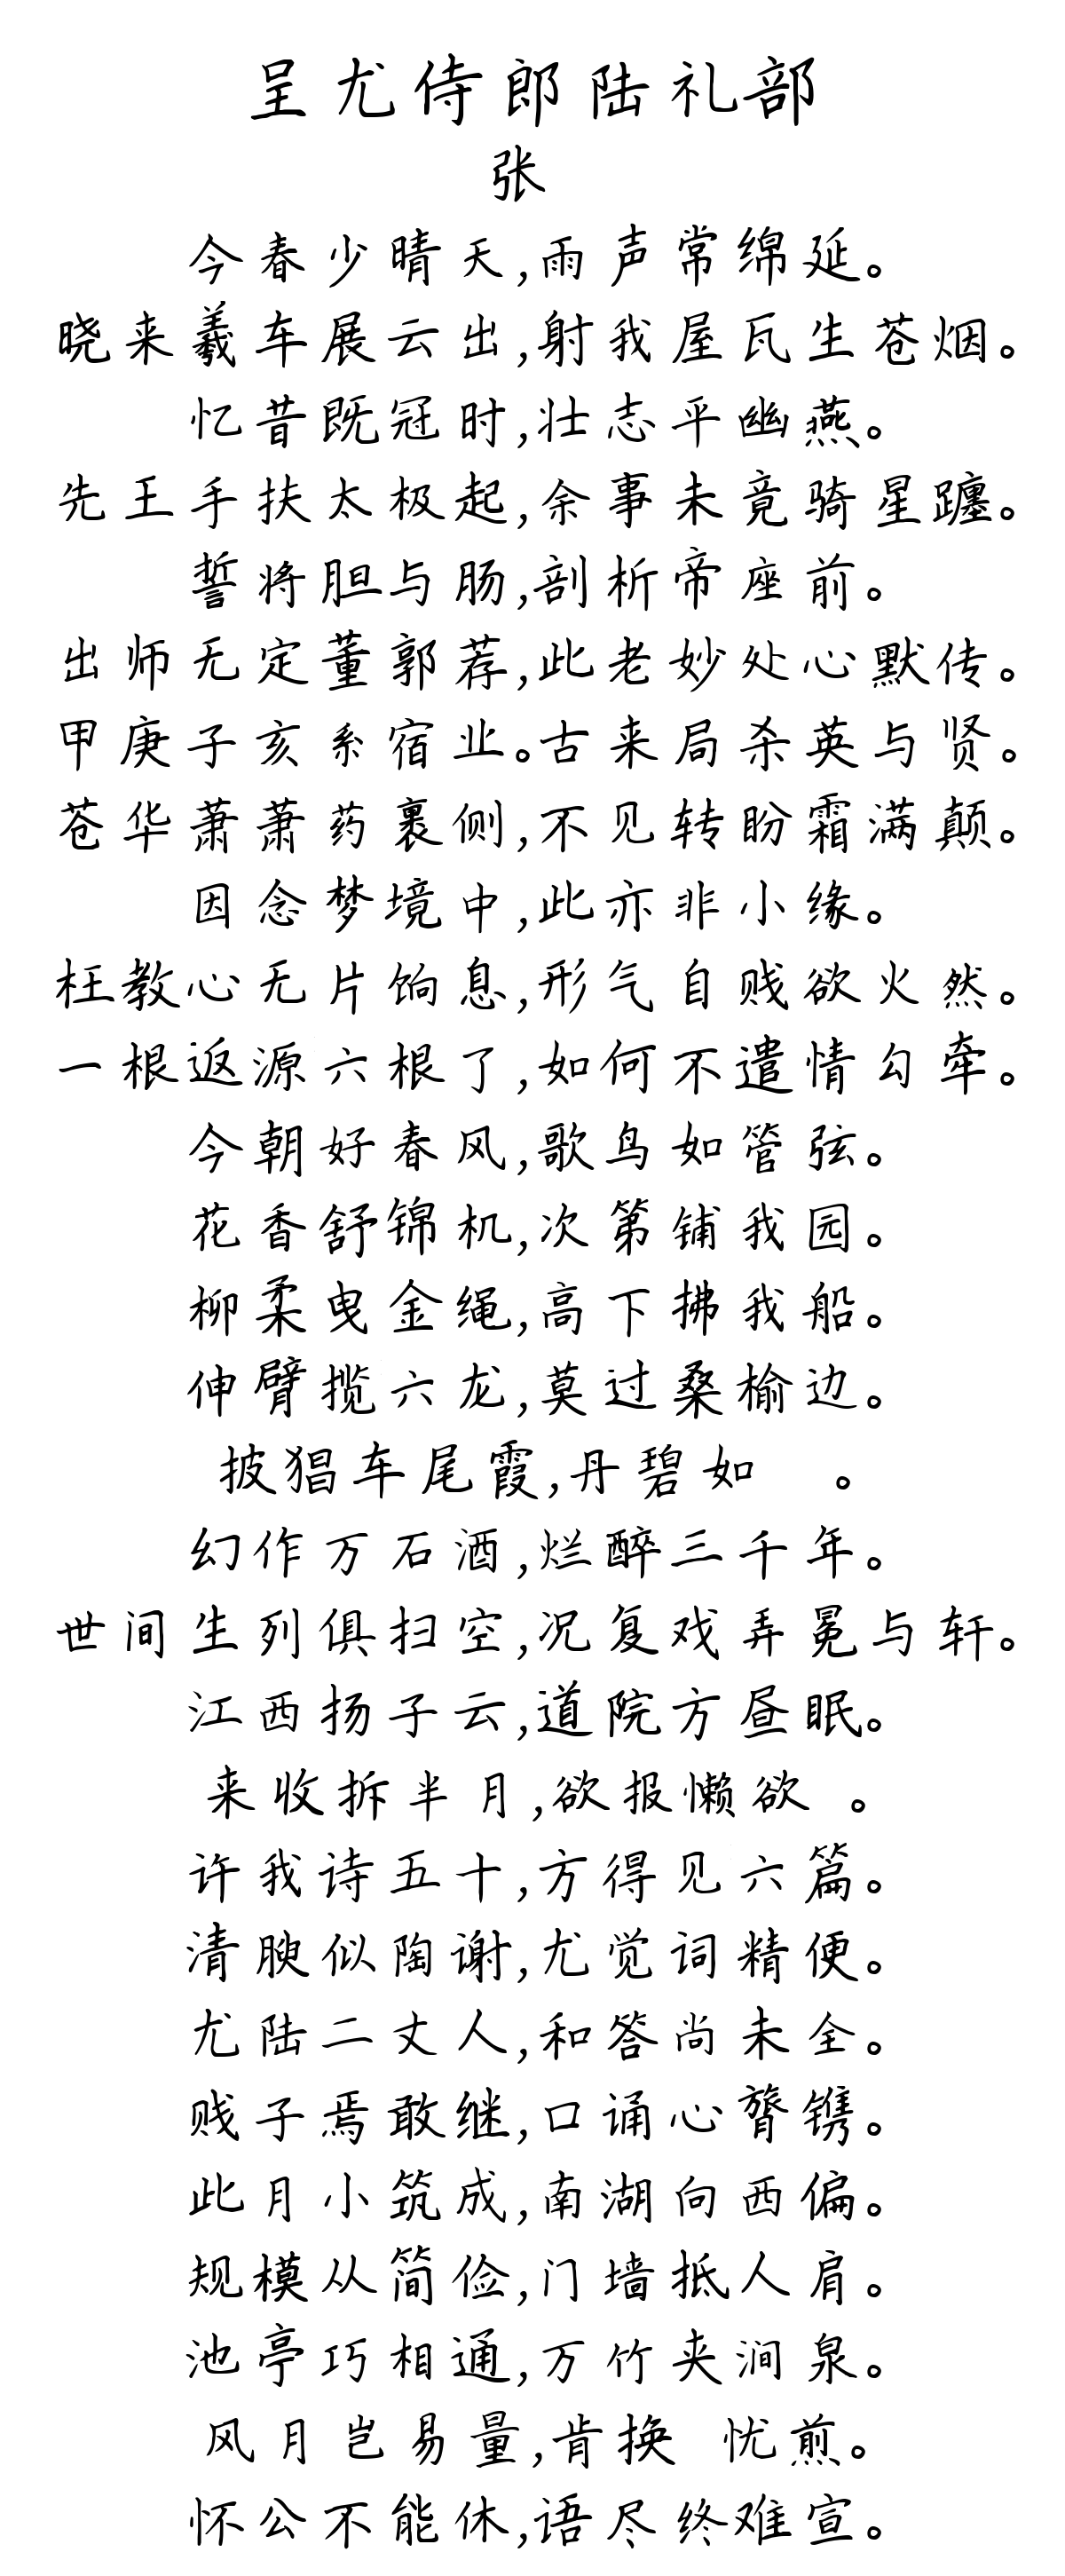 呈尤侍郎陆礼部
张
今春少晴天,雨声常绵延。
晓来羲车展云出,射我屋瓦生苍烟。
忆昔既冠时,壮志平幽燕。
先王手扶太极起,余事未竟骑星躔。
誓将胆与肠,剖析帝座前。
出师无定董郭荐,此老妙处心默传。
甲庚子亥系宿业。古来局杀英与贤。
苍华萧萧药裹侧,不见转盼霜满颠。
因念梦境中,此亦非小缘。
枉教心无片饷息,形气自贱欲火然。
一根返源六根了,如何不遣情勾牵。
今朝好春风,歌鸟如管弦。
花香舒锦机,次第铺我园。
柳柔曳金绳,高下拂我船。
伸臂揽六龙,莫过桑榆边。
披猖车尾霞,丹碧如 。
幻作万石酒,烂醉三千年。
世间生列俱扫空,况复戏弄冕与轩。
江西扬子云,道院方昼眠。
来收拆半月,欲报懒欲 。
许我诗五十,方得见六篇。
清腴似陶谢,尤觉词精便。
尤陆二丈人,和答尚未全。
贱子焉敢继,口诵心膂镌。
此月小筑成,南湖向西偏。
规模从简俭,门墙抵人肩。
池亭巧相通,万竹夹涧泉。
风月岂易量,肯换 忧煎。
怀公不能休,语尽终难宣。